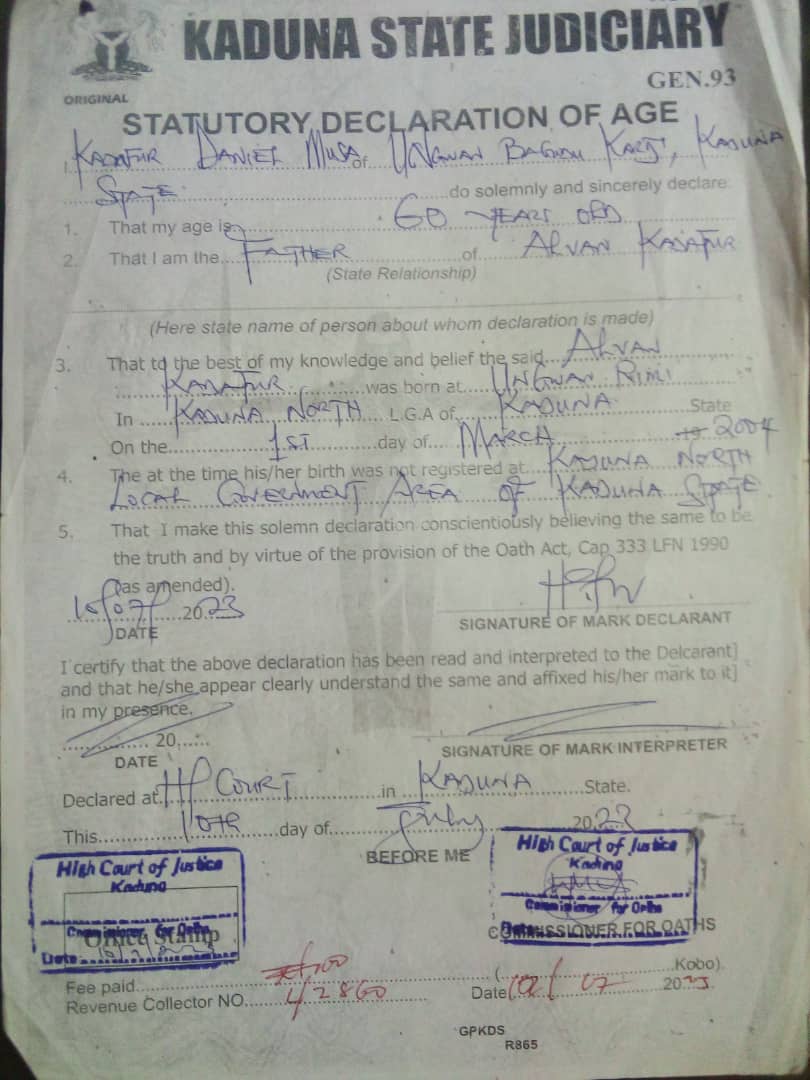 KADUNA STATE JUDICIARY
GEN.93
ORIGINAL
STATUTORY DECLARATION OF AGE
I, KADAFUR DANIEL MUSA of UNGWAN KARJI, KADUNA
STATE do solemnly and sincerely declare
1. That my age is 60 YEARS OLD
2. That I am the FATHER of ALVAN KADAFUR
(State Relationship)
(Here state name of person about whom declaration is made)
3. That to the best of my knowledge and belief the said ALVAN
KADAFUR was born at UNGWAN RIMI
In KADUNA NORTH L.G.A of KADUNA State
On the 1ST day of MARCH 19 2004
4. The at the time his/her birth was not registered at KADUNA NORTH
LOCAL GOVERNMENT AREA OF KADUNA STATE
5. That I make this solemn declaration conscientiously believing the same to be
the truth and by virtue of the provision of the Oath Act, Cap 333 LFN 1990
(as amended).
10/07/2023
DATE
SIGNATURE OF MARK DECLARANT
I certify that the above declaration has been read and interpreted to the Delcarant]
and that he/she appear clearly understand the same and affixed his/her mark to it]
in my presence.
20
DATE
SIGNATURE OF MARK INTERPRETER
Declared at COURT in KADUNA State.
This 10th day of July 2023
BEFORE ME
High Court of Justice
Kaduna
Commissioner for Oaths
Office Stamp
Date
High Court of Justice
Kaduna
Commissioner for Oaths
Date
COMMISSIONER FOR OATHS
Fee paid ( Kobo).
Revenue Collector NO. 42860 Date 10/07 2023
GPKDS
R865